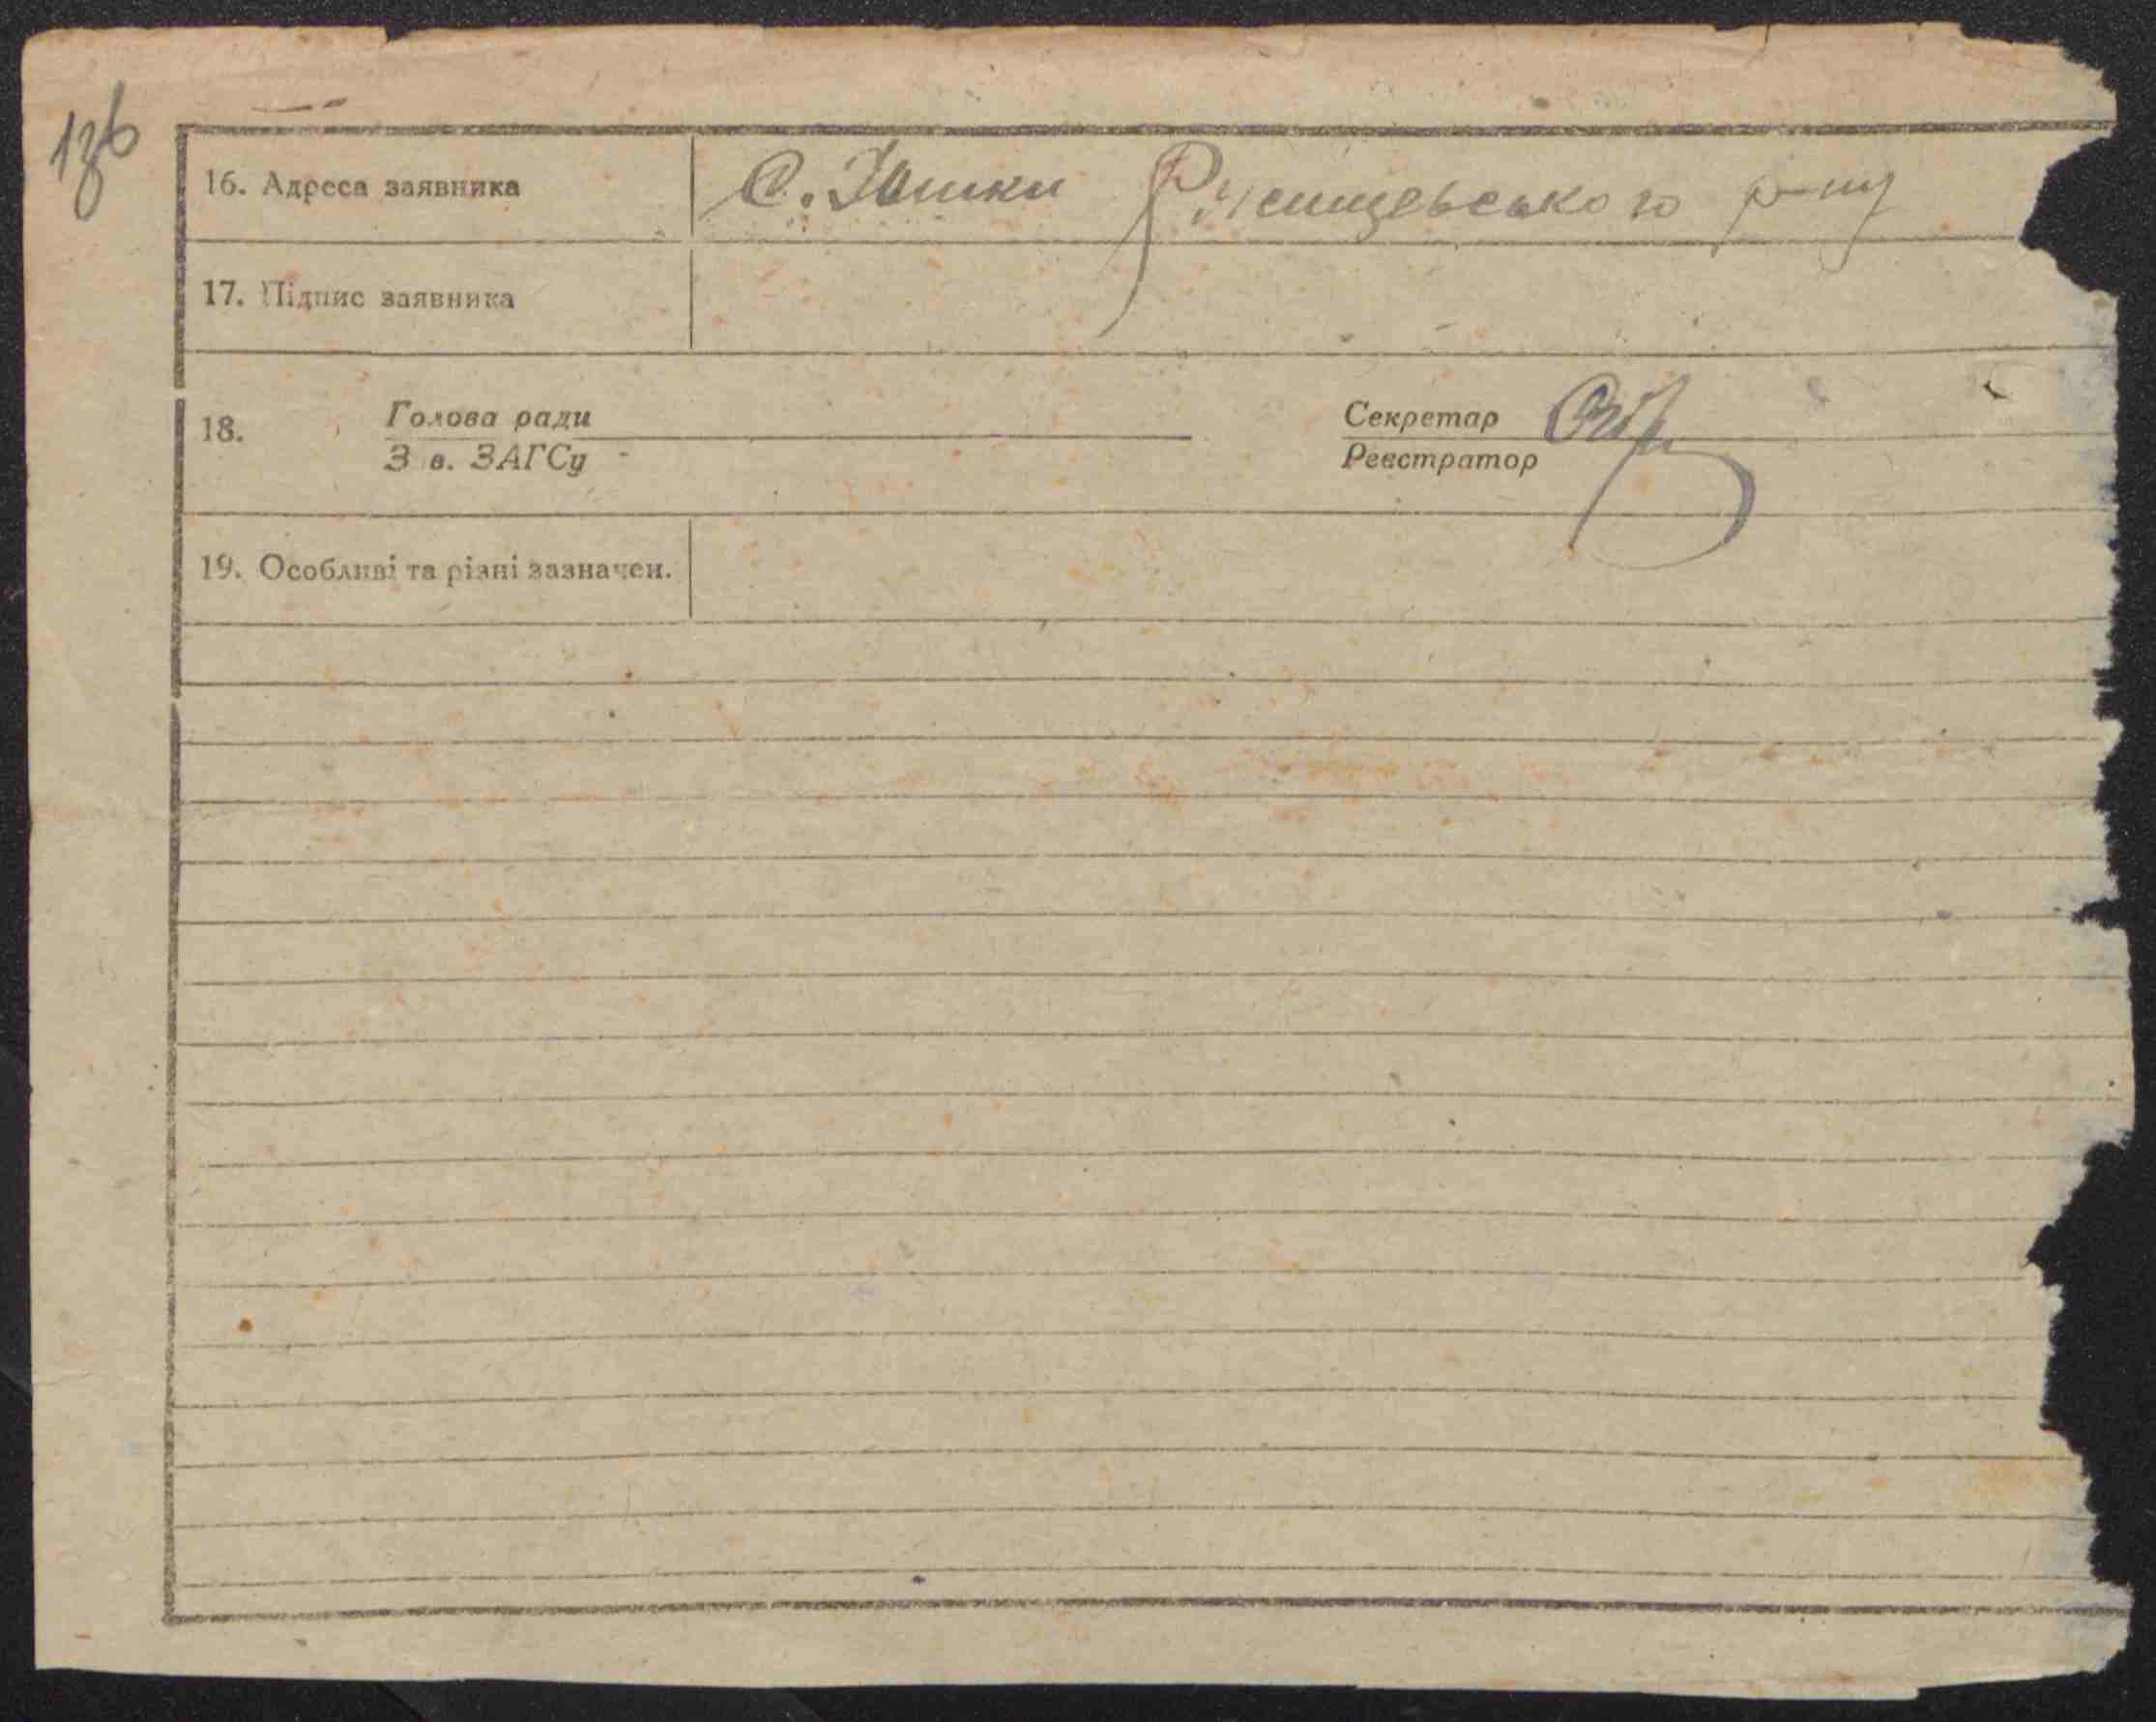 136
16. Адреса заявника С. Юшки Ржищевського р-ну
17. Підпис заявника
18. Голова ради Секретар
З в. ЗАГСу Реєстратор
19. Особливі та різні зазначен.